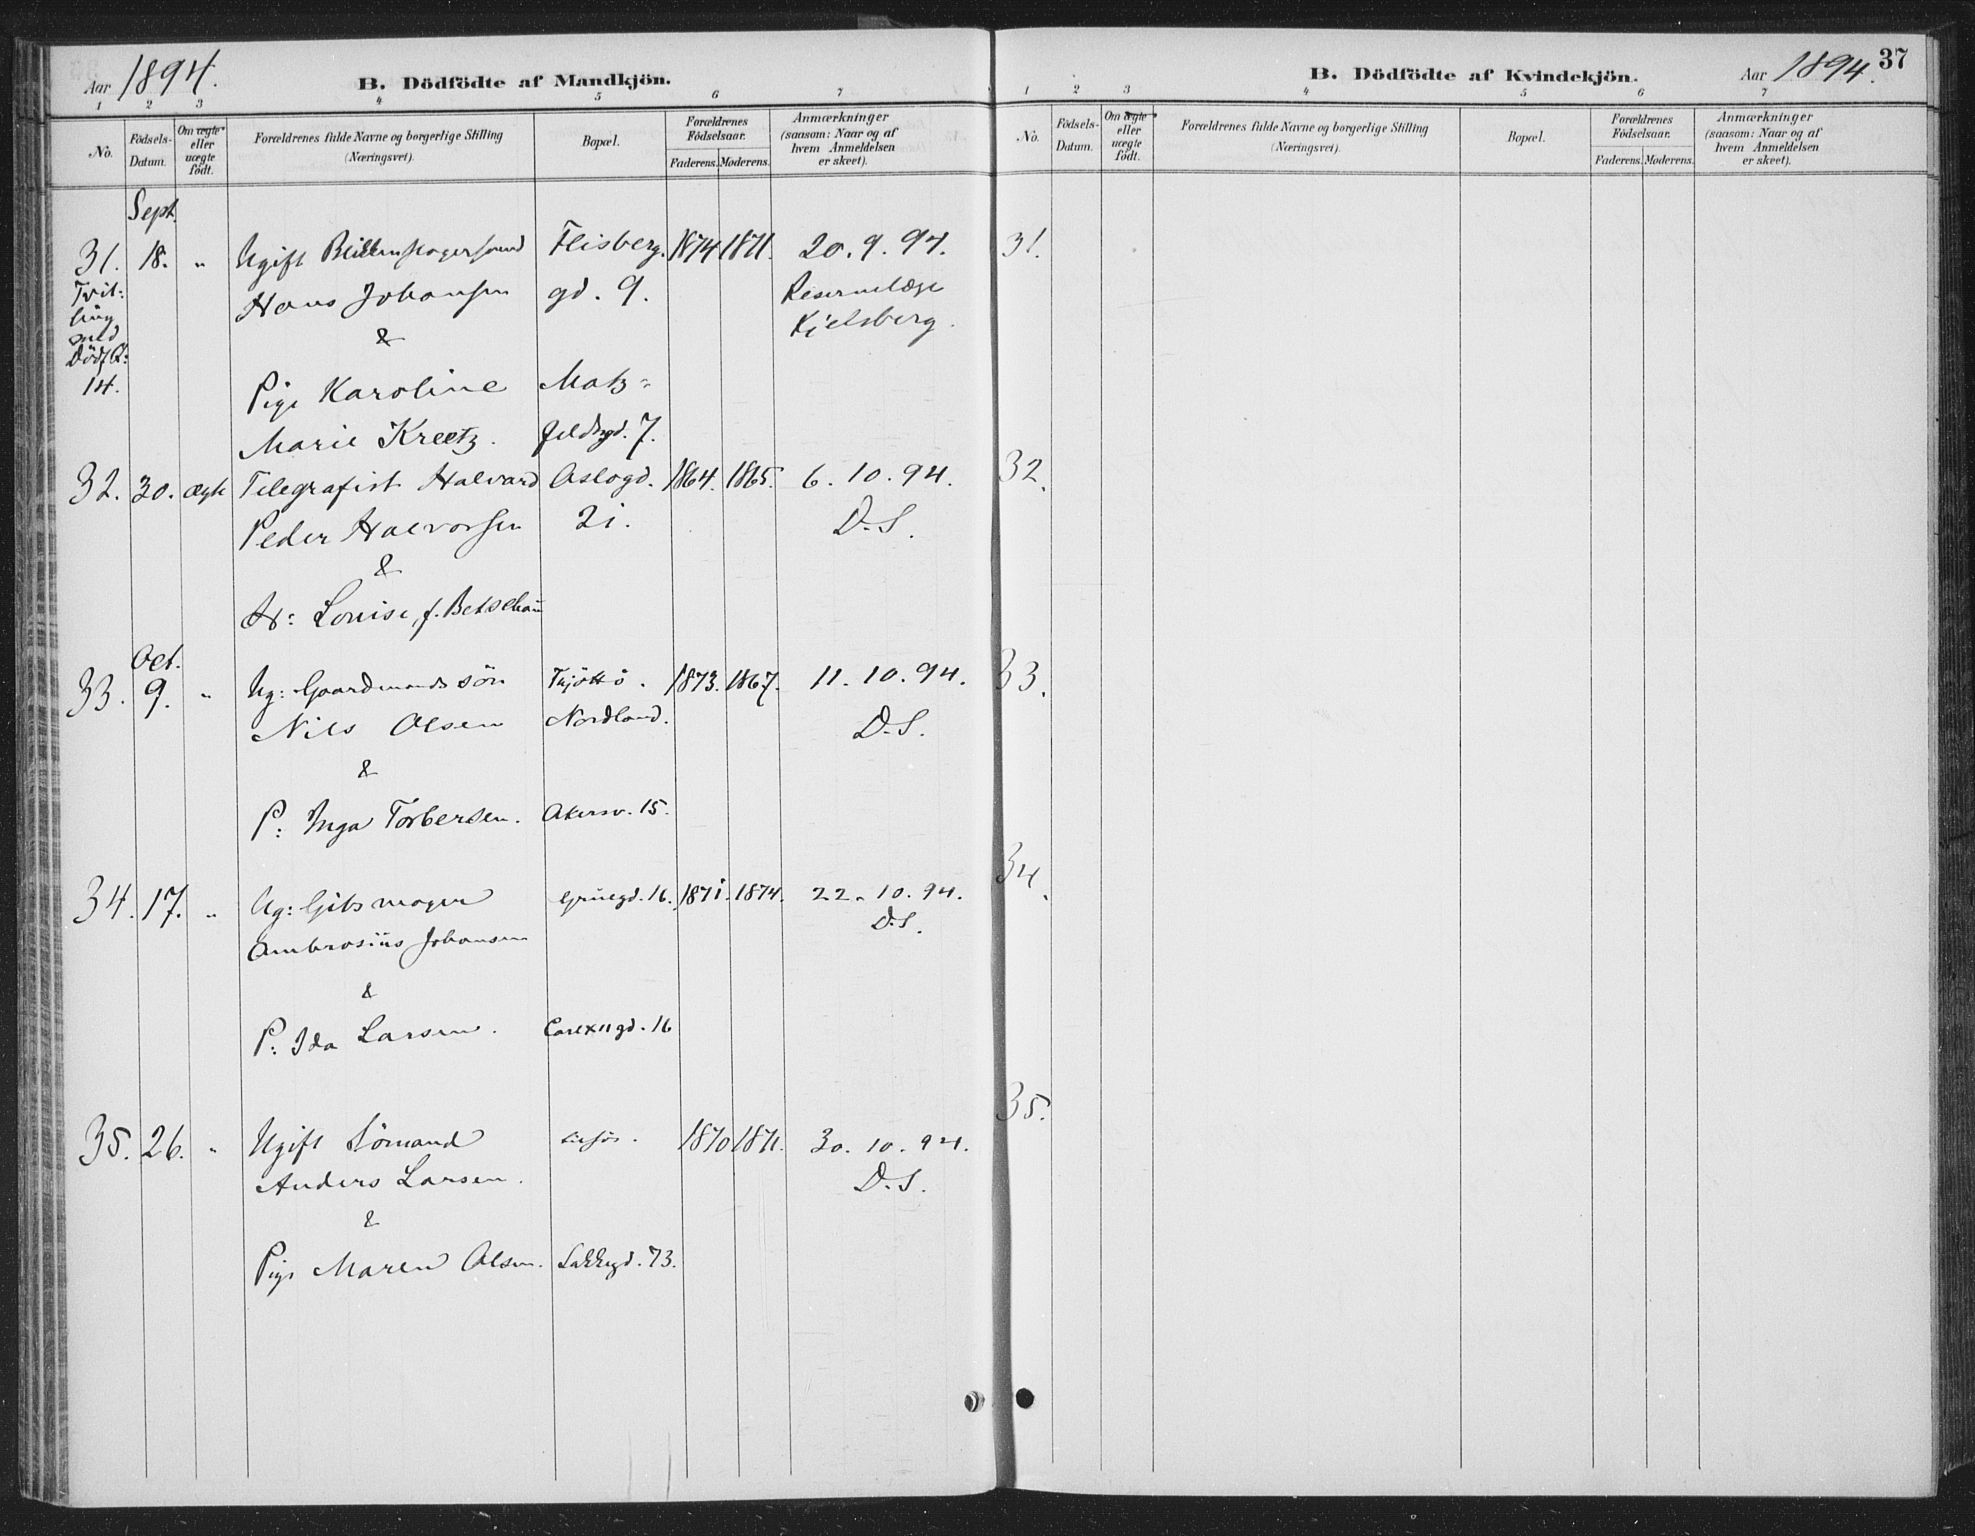 Aar 1894.
B. Dödfödte af Mandkjön.
1 2 3 4 5 6 7
No.
Födsels-Datum.
Om ægte eller uægte födt.
Forældrenes fulde Navne og borgerlige Stilling (Næringsvei).
Bopæl.
Forældrenes Födselsaar.
Faderens. Moderens.
Anmærkninger (saasom: Naar og af hvem Anmeldelsen er skeet).
Sept.
31. 18. „ Ugift Flisberg. 1874 1871. 20.9.94.
Tvil-
ling
med
Dödf. K:
14.
Hans Johansen gd. 9. Reservelæge
& Kjelsberg.
Pige Karoline Matz-
Marie Kreetz. feldtsgd. 7.
32. 30. ægte Telegrafist Halvard Oslogd. 1864. 1865. 6.10.94.
Peder Halvorsen 2i. D.S.
&
H: Louise, f.
Oct.
33. 9. „ Ug: Gaardmandssön Thjöttö. 1873. 1867. 11.10.94.
Nils Olsen Nordland. D.S.
&
P: Inga Torbersen. Akersv. 15.
34. 17. „ Ug: Gibsmager Grünegd. 16. 1871. 1874. 22.10.94.
Ambrosius Johansen D.S.
&
P: Ida Larsen. Carl XII gd. 16
35. 26. „ Ugift Sömand 1870 1871. 30.10.94.
Anders Larsen. D.S.
&
Pige Maren Olsen. Lakkegd. 73.
B. Dödfödte af Kvindekjön.
Aar 1894.
37
1 2 3 4 5 6 7
No.
Födsels-Datum.
Om ægte eller uægte födt.
Forældrenes fulde Navne og borgerlige Stilling (Næringsvei).
Bopæl.
Forældrenes Födselsaar.
Faderens. Moderens.
Anmærkninger (saasom: Naar og af hvem Anmeldelsen er skeet).
31.
32.
33.
34.
35.